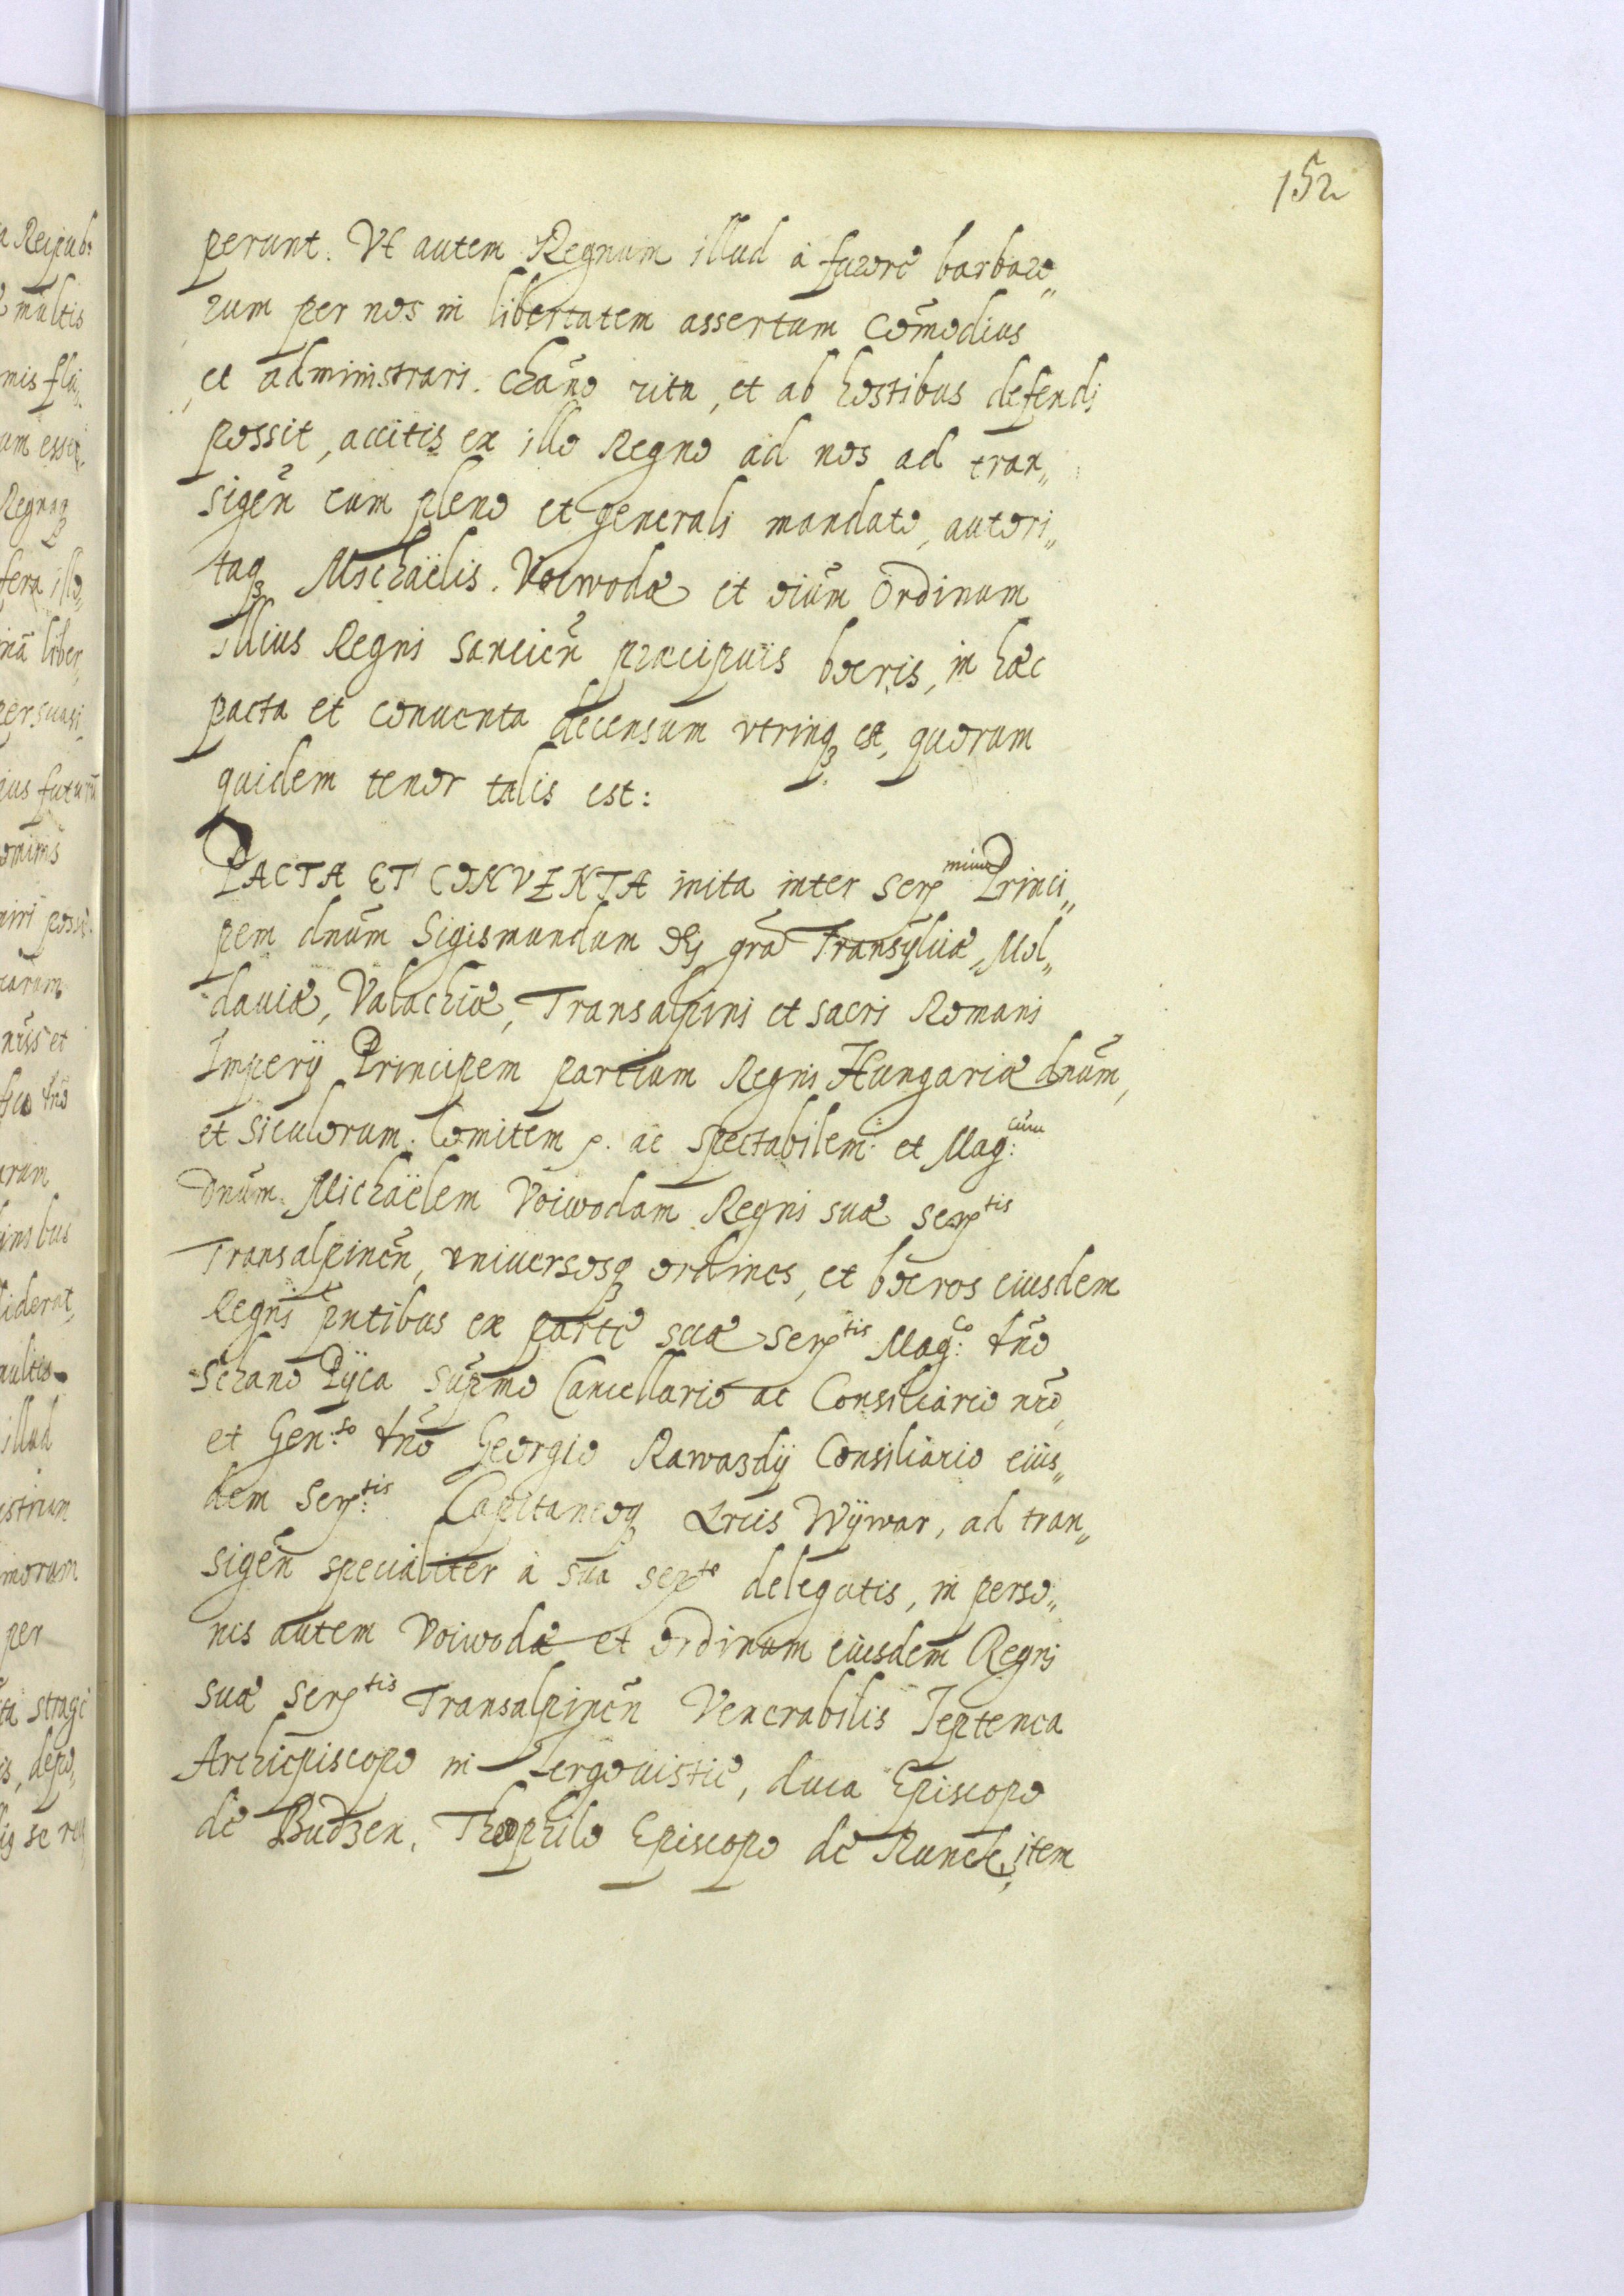 152
perunt. Vt autem Regnum illud à furore barbaro„
rum per nos in libertatem assertum cōmodius
et administrari. chãno ritu, et ab hostibus defendi
possit, accitis ex illo Regno ad nos ad tran„
sigeñ cum pleno et generali mandato, autori„
taq Michaëlis. Voiwodæ et oiũm Ordinum
illius Regni sancieñ præcipuis boeris, in hæc
pacta et conuenta decensum vtrinq est, quorum
quidem tenor talis est:
PACTA ET CONVENTA inita inter Ser mum Princi„
pem dnũm Sigismundum dei grã Transyluiæ, Mol„
dauiæ, Valachiæ, Transalpini et sacri Romani
Imperij Principem partium Regni Hungariæ dnũm,
et Siculorum. Comitem p. ac Spectabilem: et Mag: cum
Dnũm. Michaëlem Voiwodam Regni suæ Ser tis
Transalpineñ, vniuersosq ordines, et boeros eiusdem
Regni pñtibus ex parte suæ Ser tis Mag: co dño
Sup̃mo Cancellario ac Consiliario nrõ,
et Gen: so dño Georgio Rawazdij Consiliario eius„
dem Ser: tis Capitaneoq Arcis Wÿwar, ad tran„
sigeñ specialiter à sua Ser te delegatis, in perso„
nis autem Voiwodæ et ordinum eiusdem Regni
suæ Ser tis Transalpineñ Venerabilis
Archiepiscopo in Tergouistie, Luca Episcopo
de Budzen, Theophilo Episcopo de item
a Reipub:
multis
liber
persuasi
illud
per